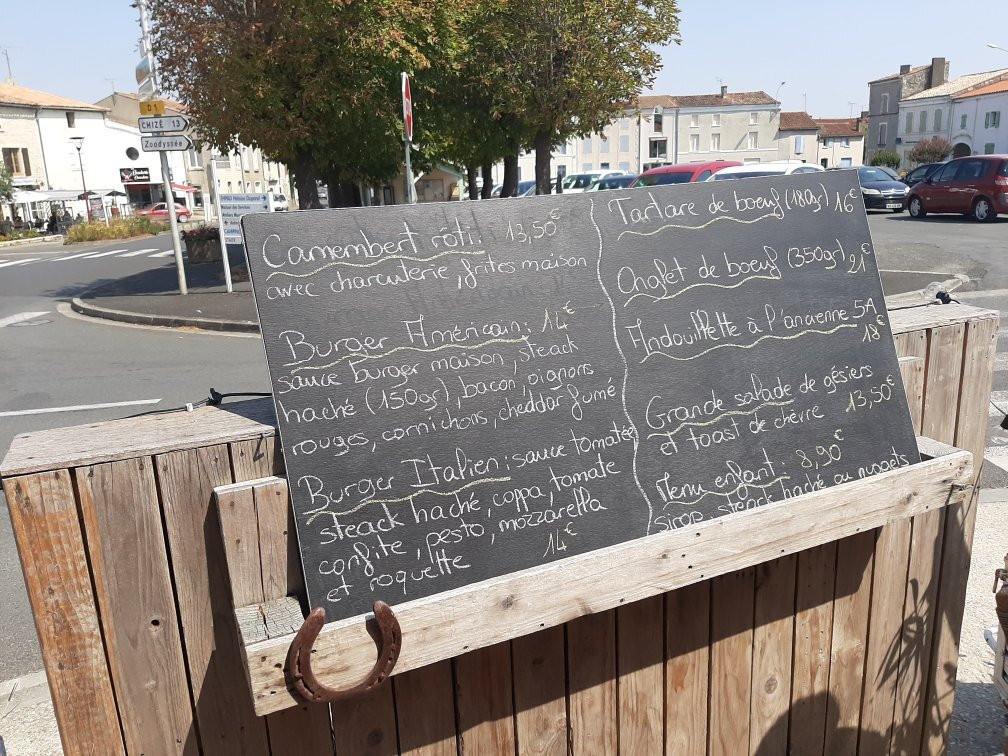 D1
CHIZÉ 13
Zoodyssée
Camembert rôti: 13,50€
avec charcuterie, frites maison
Burger Américain: 14€
sauce burger maison, steack
haché (150gr), bacon, oignons
rouges, cornichons, cheddar fumé
Burger Italien: sauce tomatée
steack haché, coppa, tomate
confite, pesto, mozzarella
et roquette 14€
Tartare de boeuf (180gr) 16€
Onglet de boeuf (350gr) 21€
Andouillette à l'ancienne 5A
18€
Grande salade de gésiers
et toast de chèvre 13,50€
Menu enfant: 8,90€
sirop, steack haché ou nuggets